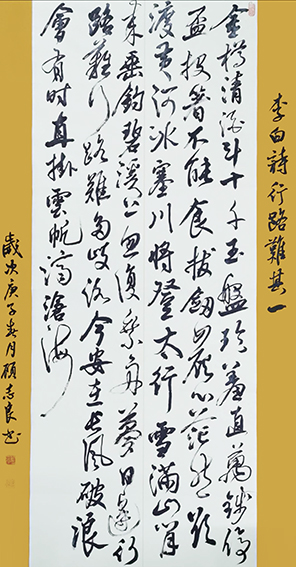 李白詩行路難其一
金樽清酒斗十千玉盤珍羞直萬錢停
盃投箸不能食拔劍四顧心茫然欲
渡黃河冰塞川將登太行雪滿山閒
來垂釣碧溪上忽復乘舟夢日邊行
路難行路難多歧路今安在長風破浪
會有時直掛雲帆濟滄海
歲次庚子春月顧志良書